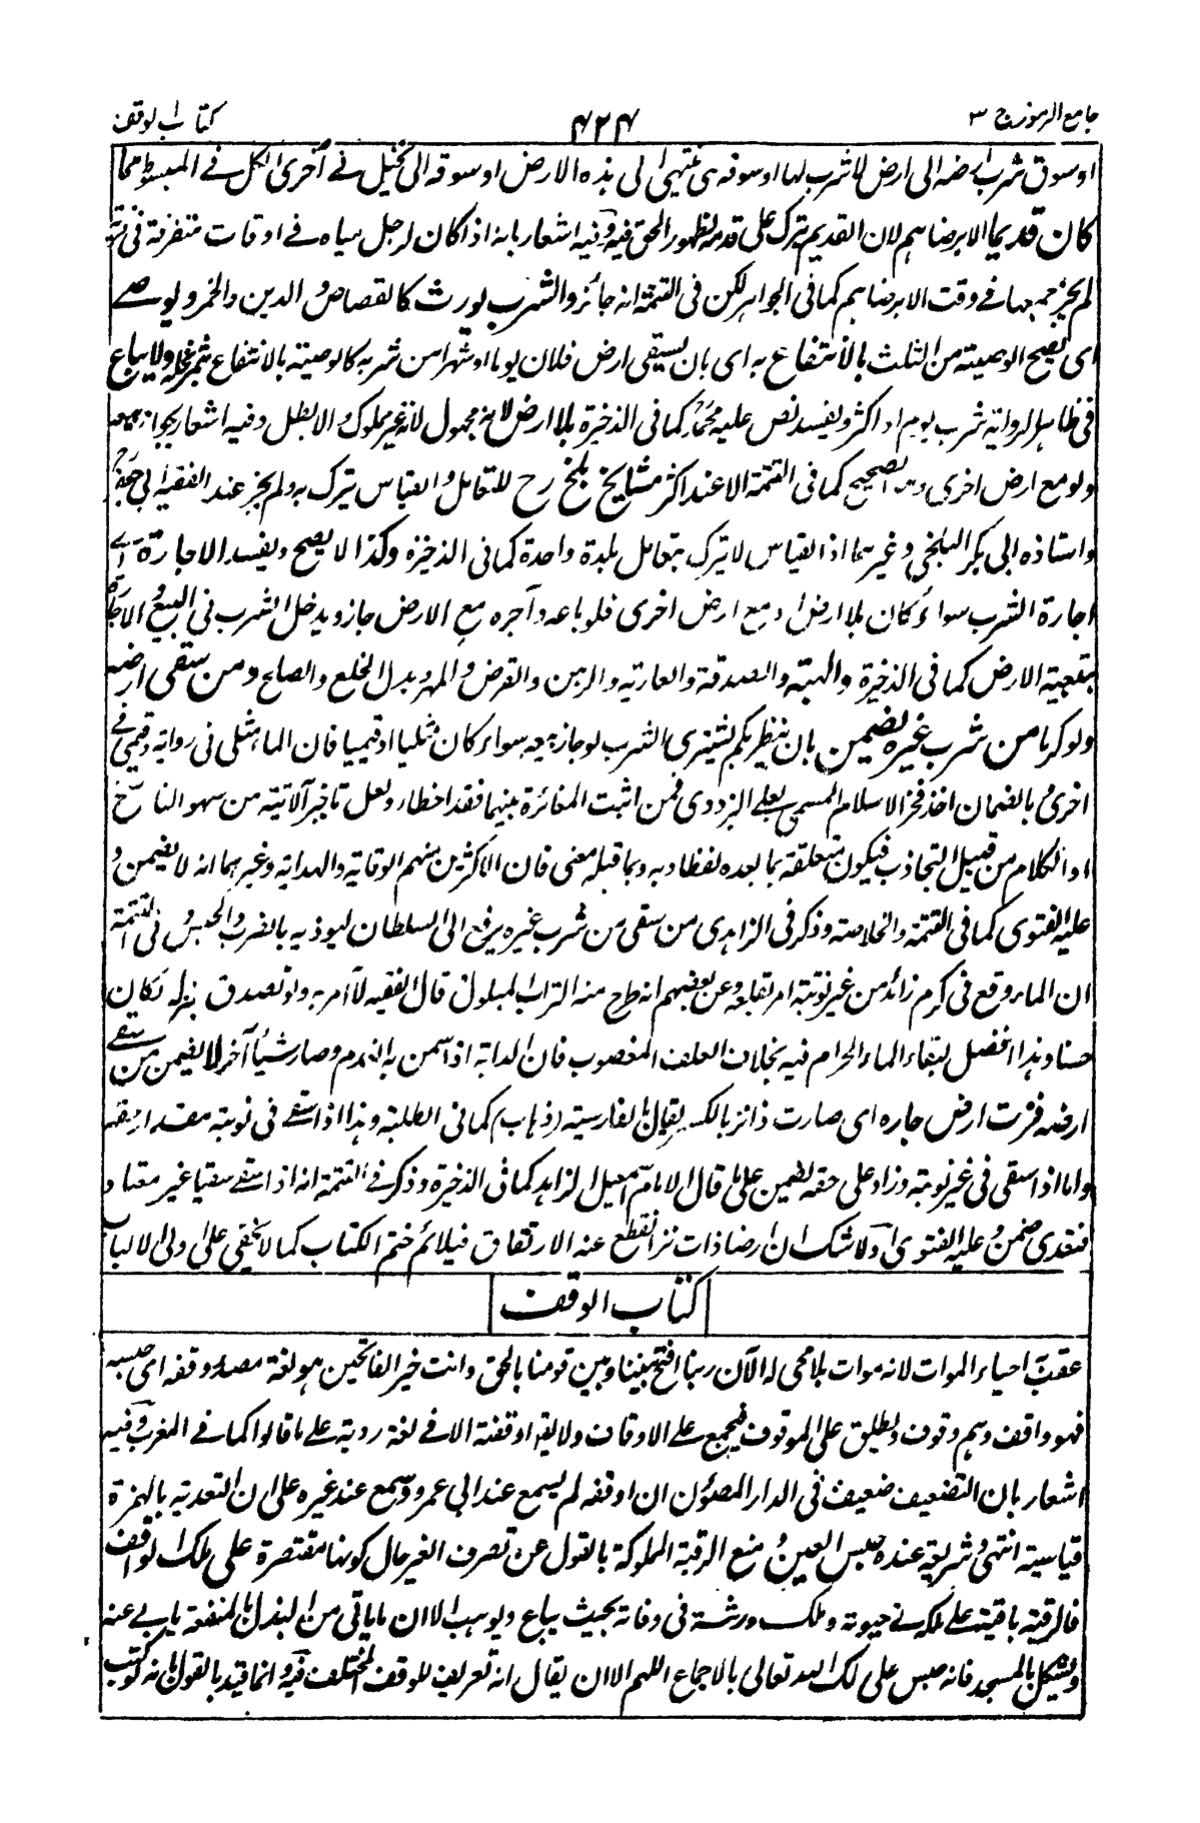 جامع الرموز ج ٣
٤٢٤
كتاب الوقف
او سوق شرب ارضه الى ارض لا شرب لها او سوقه حتى ينتهى الى هذه الارض او سوقه الى النخيل فے اخرى الكل فے المبسوط مما
كان قديما الا برضاهم لان القديم يترك على قدمه لظهور الحق فيه وفيه اشعار بانه اذا كان لرجل مياه فے اوقات متفرقة فى
لم يجز جمعها فے وقت الا برضاهم كما فى الجواهر لكن فى التتمة انه جائز والشرب يورث كالقصاص والدين والخمر ويوصے
اى تصح الوصية من الثلث بالانتفاع به اى بان يسقى ارض فلان يوما او شهرا من شربه كالوصية بالانتفاع بثمر نخله ولا يباع
فى ظاهر الرواية شرب يوم او اكثر ويفسد نص عليه محمد كما فى الذخيرة بلا ارض لانه مجهول لانه غير مملوك والا بطل وفيه اشعار بجواز بيعه
ولو مع ارض اخرى وهو الصحيح كما فى التتمة الا عند اكثر مشايخ بلخ رح للتعامل والقياس يترك به ولم يجز عند الفقيه ابى جعفر
واستاذه ابى بكر البلخى وغيرهما اذ القياس لا يترك بتعامل بلدة واحدة كما فى الذخيرة وكذا لا يصح ويفسد الاجارة اے
اجارة الشرب سواء كان بلا ارض او مع ارض اخرى فلو باعه وآجره مع الارض جاز ويدخل الشرب فى البيع والاجارة
بتبعية الارض كما فى الذخيرة والهبة والصدقة والعارية والرهن والقرض والمهر وبدل الخلع والصلح ومن سقى ارضه
ولو كرما من شرب غيره يضمن بان ينظر بكم يشترى الشرب لو جاز بيعه سواء كان مثليا او قيميا فان الماء مثلى فى رواية وقيمى فے
اخرى وبالضمان اخذ فخر الاسلام المسمى بعلے البزدوى فمن اثبت المغائرة بينهما فقد اخطاء ولعل تاخير الآتية من سهو الناسخ
او الكلام من قبيل التجاذب فيكون متعلقة بما بعده لفظا وبه وبما قبله معنى فان الاكثرين منهم الوقاية والهداية وغيرهما انه لا يضمن و
عليه الفتوى كما فى التتمة والخلاصة وذكر فى الزاهدى من سقى من شرب غيره يرفع الى السلطان ليوذبه بالضرب والحبس وفى التتمة
ان الماء وقع فى كرم زائد من غير نوبته امر بقلعه وعن بعضهم انه طرح منه التراب المبلول قال الفقيه لا آمر به ولو تصدق بنزله لكان
حسنا وهذا افضل لبقاء الماء الحرام فيه بخلاف العلف المغصوب فان الدابة اذا سمن به انعدم وصار شيئا آخر لا يضمن من سقے
ارضه فنزت ارض جاره اى صارت ذا نز بالكسر يقال بالفارسية (زهاب) كما فى الطلبة وهذا اذا سقے فى نوبته مقدار حقه
واما اذا سقى فى غير نوبته وزاد على حقه يضمن على ما قال الامام اسمعيل الزاهد كما فى الذخيرة وذكر فے التتمة انه اذا سقے سقيا غير معتاد
فتعدى ضمن وعليه الفتوى ولا شك ان ارضا ذات نز انقطع عنه الارتفاق فيلائم ختم الكتاب كما لا يخفى على اولى الالباب
كتاب الوقف
عقب احياء الموات لانه موات بلا محى له الآن ربنا افتح بيننا وبين قومنا بالحق وانت خير الفاتحين هو لغة مصدر وقفه اى حبسه
فهو واقف وهم وقوف ويطلق على الموقوف فيجمع على الاوقاف ولا يقال اوقفته الا فے لغة ردية على ما قالوا كما فے المغرب وفيه
اشعار بان التضعيف ضعيف فى الدار المصئون ان اوقفه لم يسمع عند ابى عمرو وسمع عند غيره على ان التعدية بالهمزة
قياسية انتهى وشريعة عنده حبس العين ومنع الرقبة المملوكة بالقول عن تصرف الغير حال كونها مقتصرة على ملك الواقف
فالرقبة باقية على ملكه فے حيوته وملك ورثته فى وفاته بحيث يباع ويوهب الا ان ما ياتى من البذل بالمنفعة يابے عنه
ويشكل بالمسجد فانه حبس على ملك الله تعالى بالاجماع اللهم الا ان يقال انه تعريف للوقف المختلف فيه وانما قيد بالقول لانه لو كتب